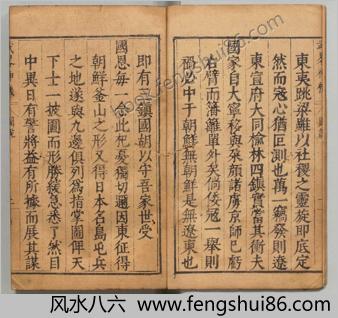 東夷跳梁雖以社稷之靈旋即底定
然而寇心猶叵測也萬一竊發則遼
東宣府大同榆林四鎮實當其衝夫
國家自大寧移與朶顏諸虜京師已虧
右臂而籓籬單外矣倘倭寇一舉則
禍必中于朝鮮無朝鮮是無遼東也
即有三鎮國朝以守吾家世受
國恩每念此獨切邇因東征得
朝鮮釜山之形又得日本名島屯兵
之地遂與九邊俱指掌圖俾天
下士一披圖而形勝緩急悉了然目
中異日有警將益有所據而展其謀
风水八六
www.fengshui86.com